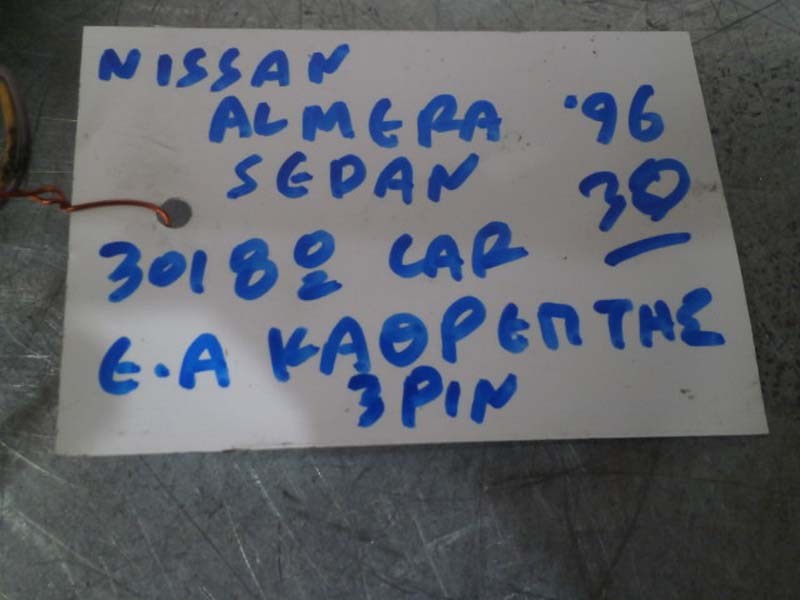 NISSAN
ALMERA '96
SEDAN 30
3018º CAR
E.A ΚΑΘΡΕΠΤΗΣ
3 PIN